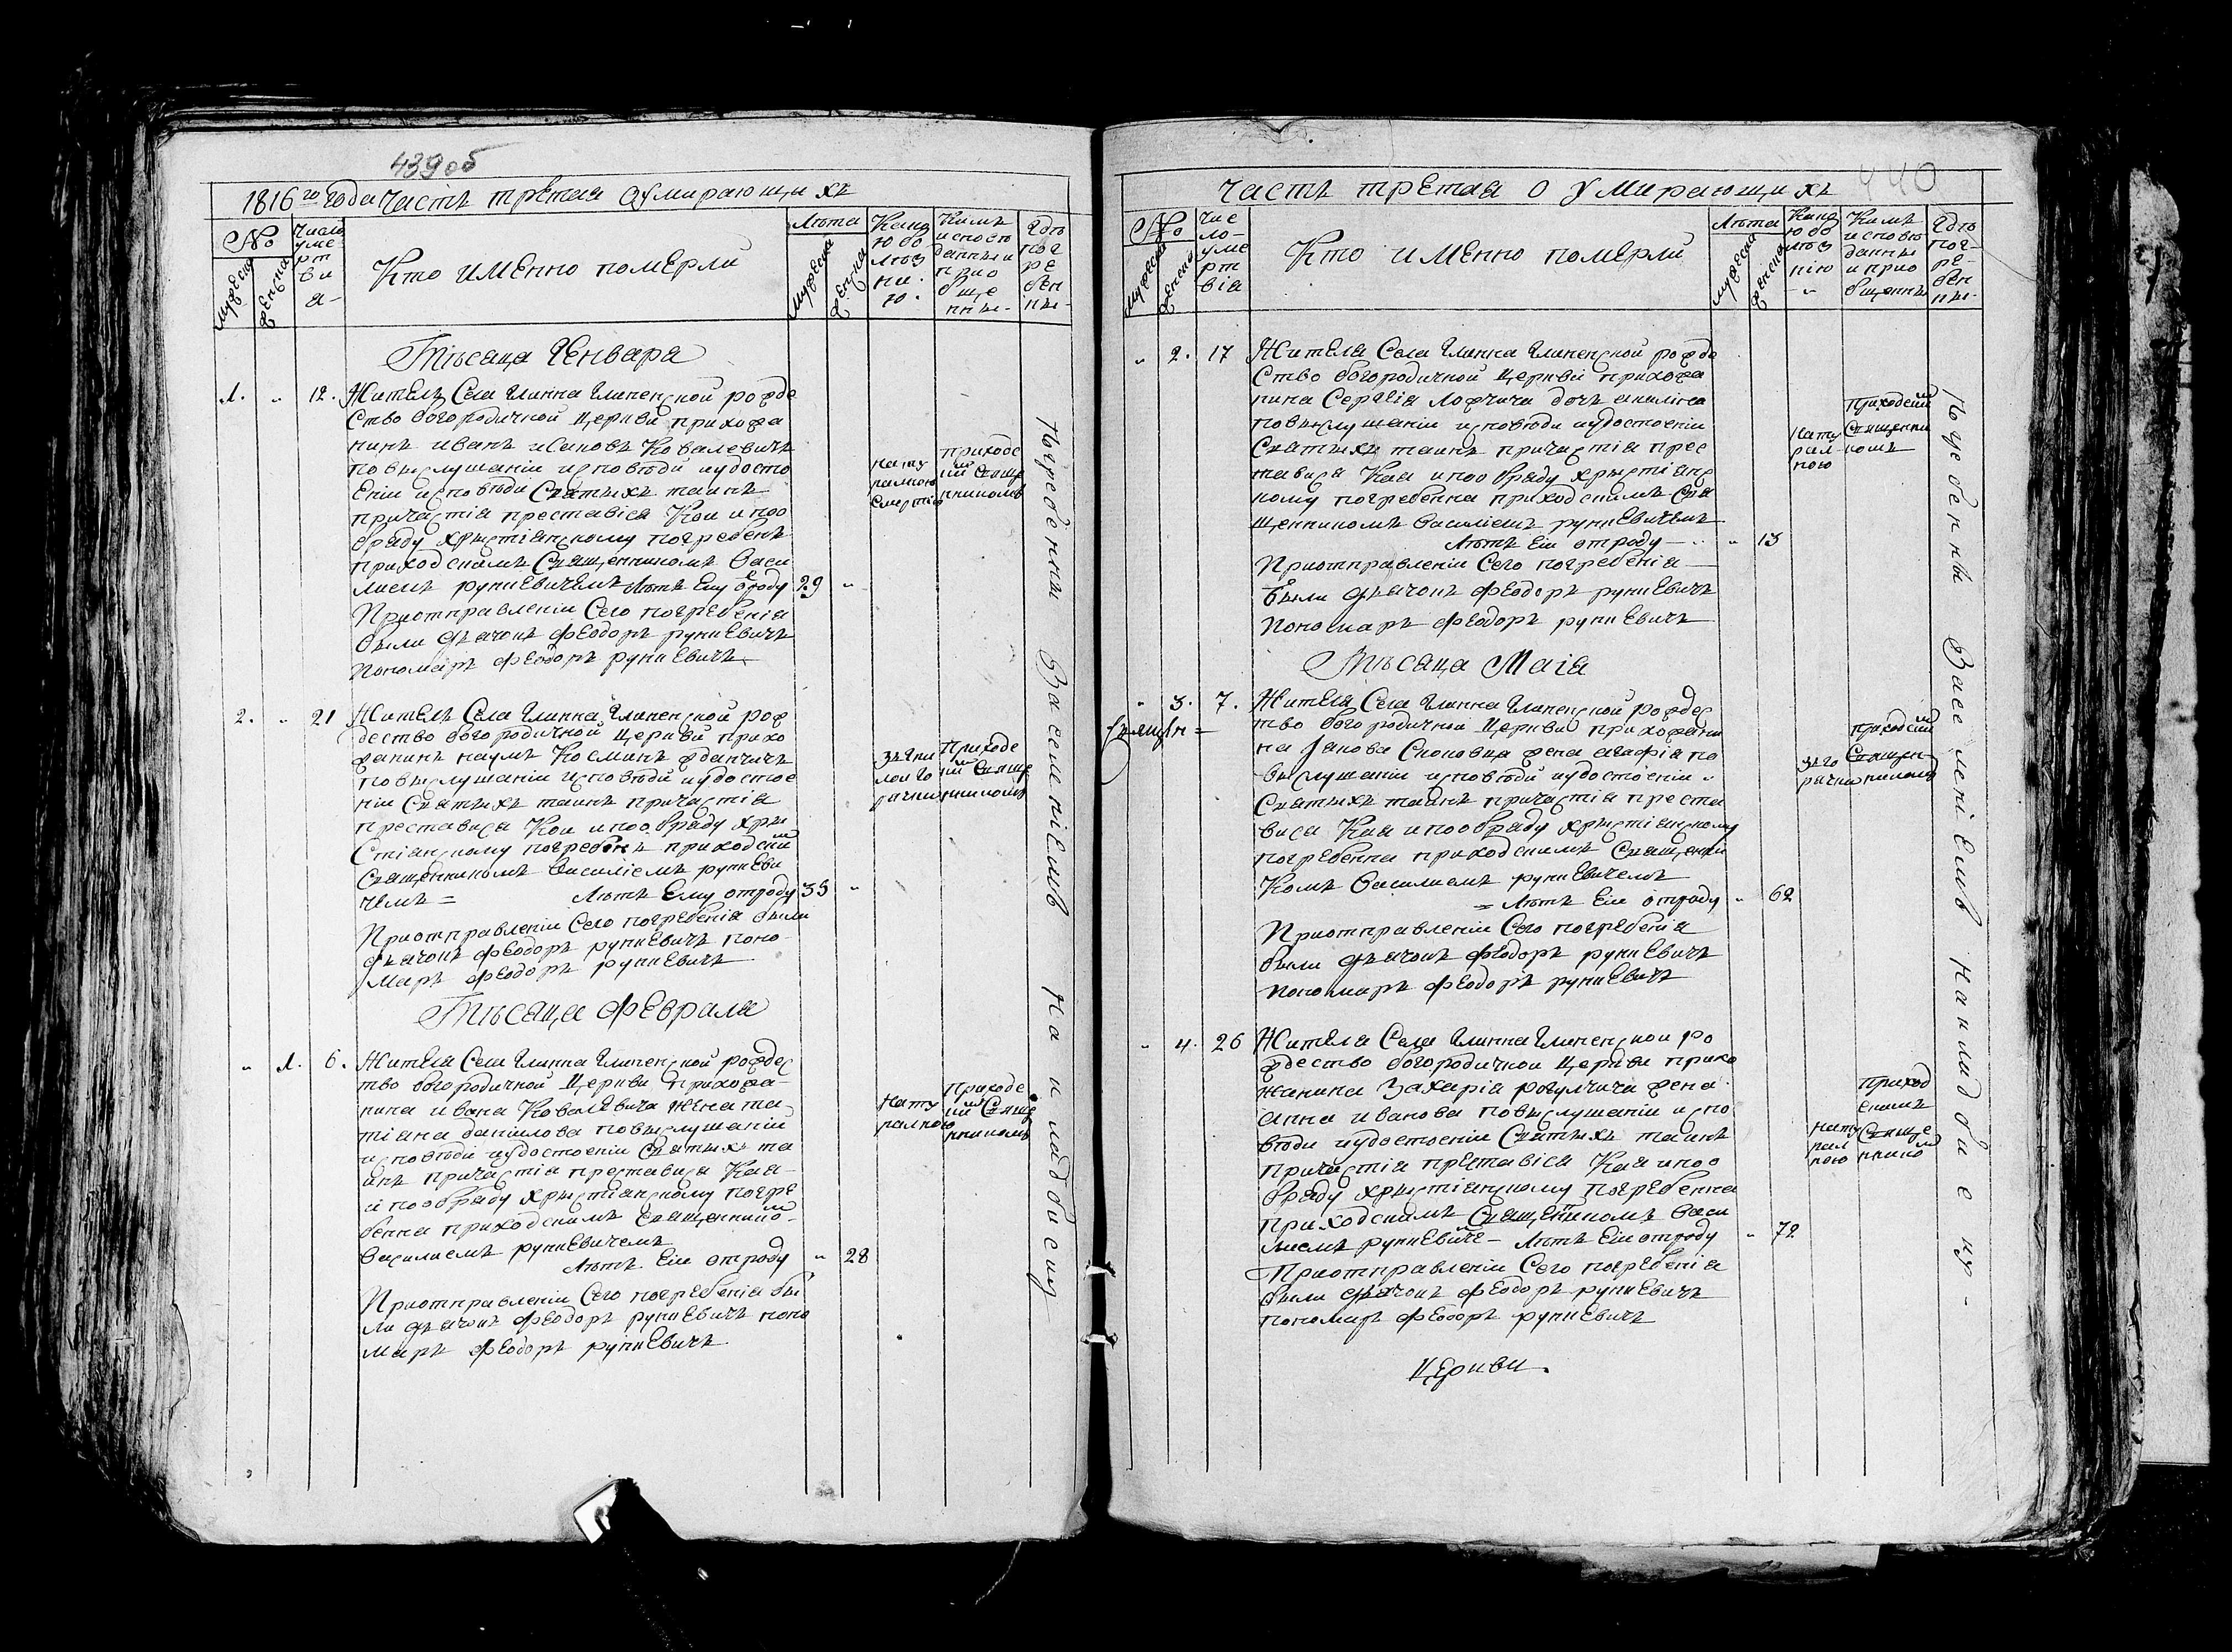 439об
1816го Года Часть третая о умирающихъ
№
мужеска
женска
Число
уме
рт
ви
а-
Кто именно померли
Лѣта
мужеска
женска
Кано
ю бо
лѣз
ни-
ю.
Кимъ
исповѣ
данны и
прио
бще
нны-
Гдѣ
пог
ре
бен
ны-
Мѣсаца Генвара
1. „ 12. Житель Села Глинна Глиненской рожде
ство богородичной Церкви прихожа
нинъ иванъ Ковалевичъ
повыслушаніи исповѣди иудосто
еніи исповѣди Святыхъ таинъ
причастіа преставіся Кои ипоо
браду христіанскому погребенъ
приходскимъ Священникомъ Васи
лиемъ рункевичемъ Лѣтъ Ему отроду 29 „
Приотправленіи Сего погребеніа
были дьячокъ Феодоръ рункевичъ
Пономаръ Феодоръ рункевичъ
нату
ралною
смертію
приходс
кий Свяще
нникомъ
2. „ 21 Житель Села Глинна Глиненской рож
дество богородичной Церкви прихо
жанинъ наумъ Косминъ жданчичъ
повыслушаніи исповѣди иудостое
ніи Святыхъ таинъ причастіа
преставися Кои ипообраду хри
стіанскому погребенъ приходскимъ
Священникомъ Василіемъ рункеви
чемъ = Лѣтъ Ему отроду 35 „
Приотправленіи Сего погребеніа были
дьячокъ Феодоръ рункевичъ поно-
маръ Феодоръ рункевичъ
Приходс
кий Свяще
нникомъ
Мѣсаца Феврала
„ 1. 6. Житела Села Глинна Глиненской рождес
тво богородичной Церкви прихожа-
нина ивана Ковалевича жена та
тіана даніилова повыслушаніи
исповѣди иудостоеніи Святыхъ та
инъ причастіа преставися Каа-
и пообраду христіанскому погре
бенна приходскимъ священнико-
Василиемъ рункевичемъ
Лѣтъ Еи отроду „ 28
Приотправленіи Сего погребеніа бы
ли дьячокъ Феодоръ рункевичъ поно
маръ Феодоръ рункевичъ
нату
ралною
Приходс
кий Свяще
нникомъ
440
часть третая о умирающихъ
№
мужеска
женска
Чис
ло-
уме
рт
віа
Кто именно померли
Лѣта
мужеска
женска
Кано
ю бо
лѣз
нію
- „
Кимъ
исповѣ
данны
и прио
бщенны
Гдѣ
пог-
ре-
бен
ны-
„ 2. 17 Житела Села Глинка Глиненской рожде
ство богородичной Церкви прихожа
нина Сергіа дочь
повыслушаніи исповѣди иудостоеніи
Святыхъ таинъ причастіа прес
тависа Каа ипообраду христіанс
кому погребенна приходскимъ Свя
щенникомъ Василіемъ рункевичемъ
Лѣтъ Еи отроду - „ 13
Приотправленіи Сего погребеніа
были дьячокъ Феодоръ рункевичъ
Пономаръ Феодоръ рункевичъ
нату
рал-
ною
приходскій
Священни
комъ
Мѣсаца Маіа
„ 3. 7. Житела Села Глинна Глиненской рождес
тво богородичной Церкви прихожани
на Іакова жена агафіа по
выслушаніи исповѣди иудостоеніи
Святыхъ таинъ причастіа преста
виса Каа ипообраду христіанскому
погребенна приходскимъ Священни
комъ Василиемъ рункевичемъ
= Лѣтъ Еи отроду „ 62
Приотправленіи Сего погребеніа
были дьячокъ Феодоръ рункевичъ
пономаръ Феодоръ рункевичъ
приходскій
Священ
никомъ
„ 4. 26 Житела Села Глинна Глиненской ро
ждество богородичнои Церкви прихо
жанина Захаріа рогулчича жена
анна иванова повыслушаніи испо
вѣди иудостоеніи Святыхъ таинъ
Причастіа преставіса Каа ипоо
браду христіанскому погребенна
приходскимъ Священникомъ Васи
лиемъ рункевиче- Лѣтъ Еи отроду „ 72
Приотправленіи Сего погребеніа
были дьячокъ Феодоръ рункевичъ
пономаръ Феодоръ рункевичъ
нату
рал
ною
приход
скимъ
Свяще
ннико
Церкви.